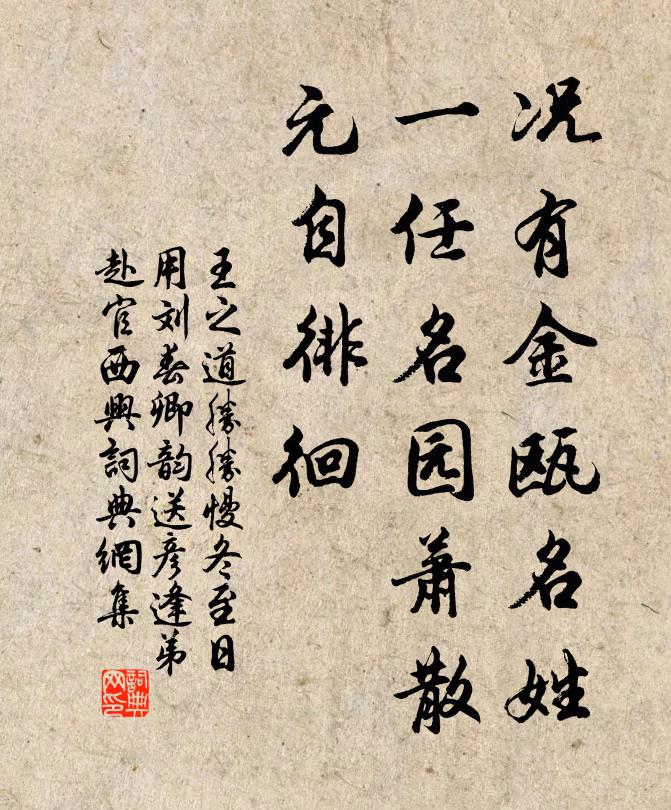 况有金瓯名姓
一任名园萧散
元自徘徊
王之道勝勝慢冬至日
用刘春卿韵送彦逢弟
赴官西興詞典網集
詞典
网印